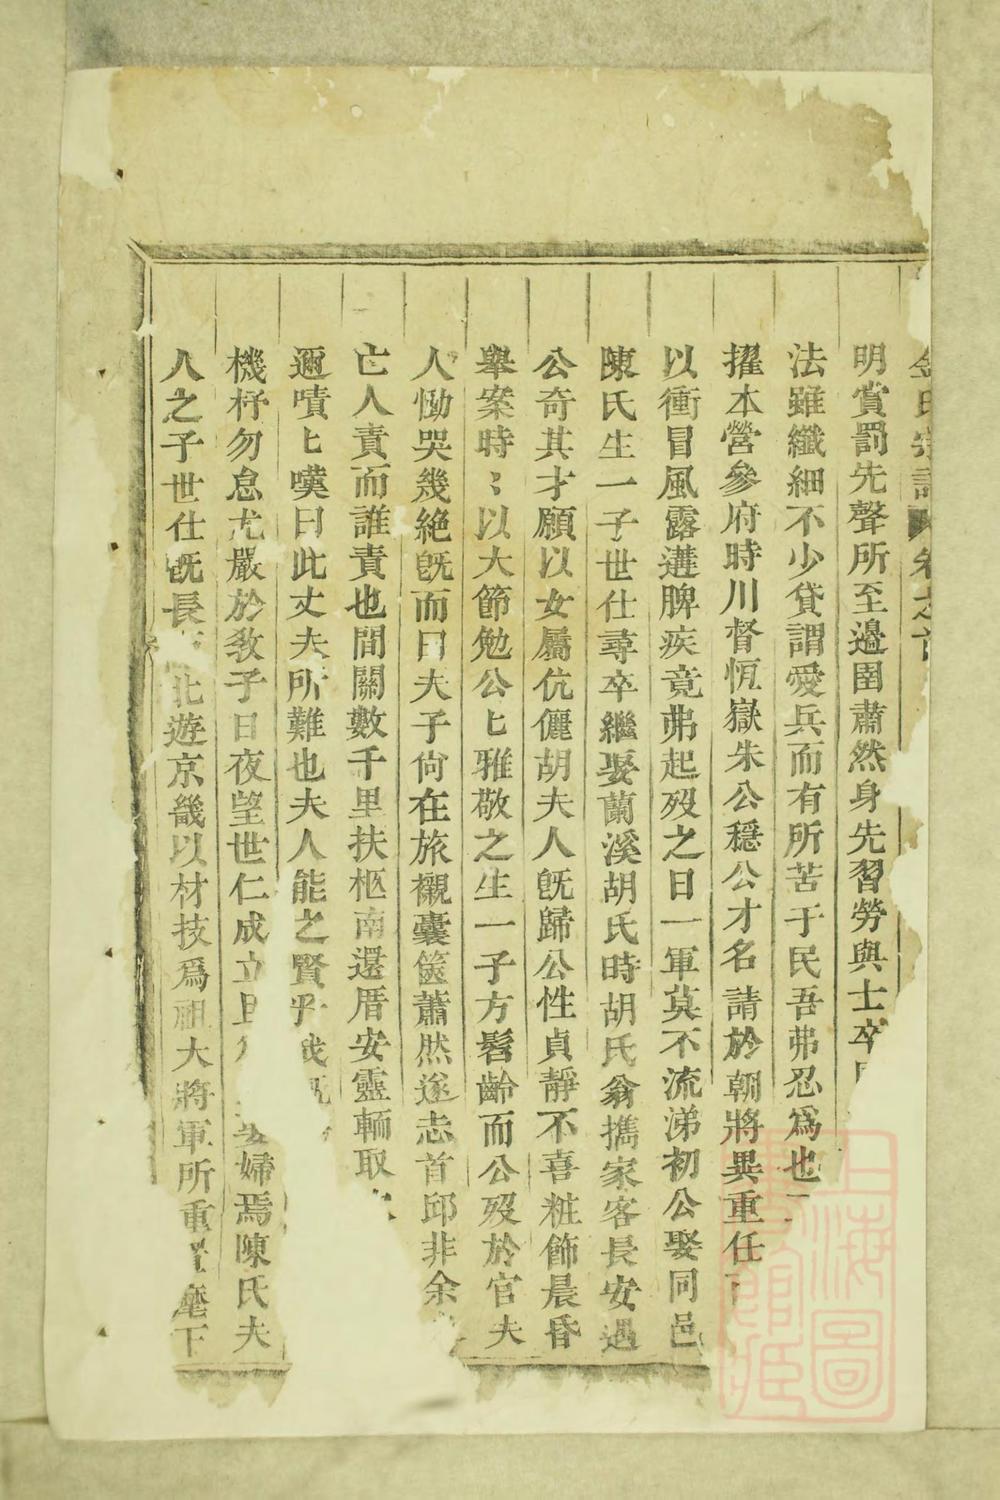 氏宗譜 卷之首
明賞罰先聲所至邊圉肅然身先習勞與士卒
法雖纖細不少貸謂愛兵而有所苦于民吾弗忍爲也
擢本營參府時川督恆嶽朱公穩公才名請於朝將異重任
以衝冒風露遘脾疾竟弗起歿之日一軍莫不流涕初公娶同邑
陳氏生一子世仕尋卒繼娶蘭溪胡氏時胡氏翁攜家客長安遇
公奇其才願以女屬伉儷胡夫人旣歸公性貞靜不喜粧飾晨昏
舉案時〻以大節勉公匕雅敬之生一子方髫齡而公歿於官夫
人慟哭幾絶旣而曰夫子尙在旅襯囊篋蕭然遂志首邱非余
亡人責而誰責也間關數千里扶柩南還厝安靈輀取
邇嘖匕嘆曰此丈夫所難也夫人能之賢乎哉
機杼勿息尤嚴於敎子日夜望世仁成立 婦焉陳氏夫
人之子世仕旣長 北遊京畿以材技爲祖大將軍所重 麾下
上海圖書館藏